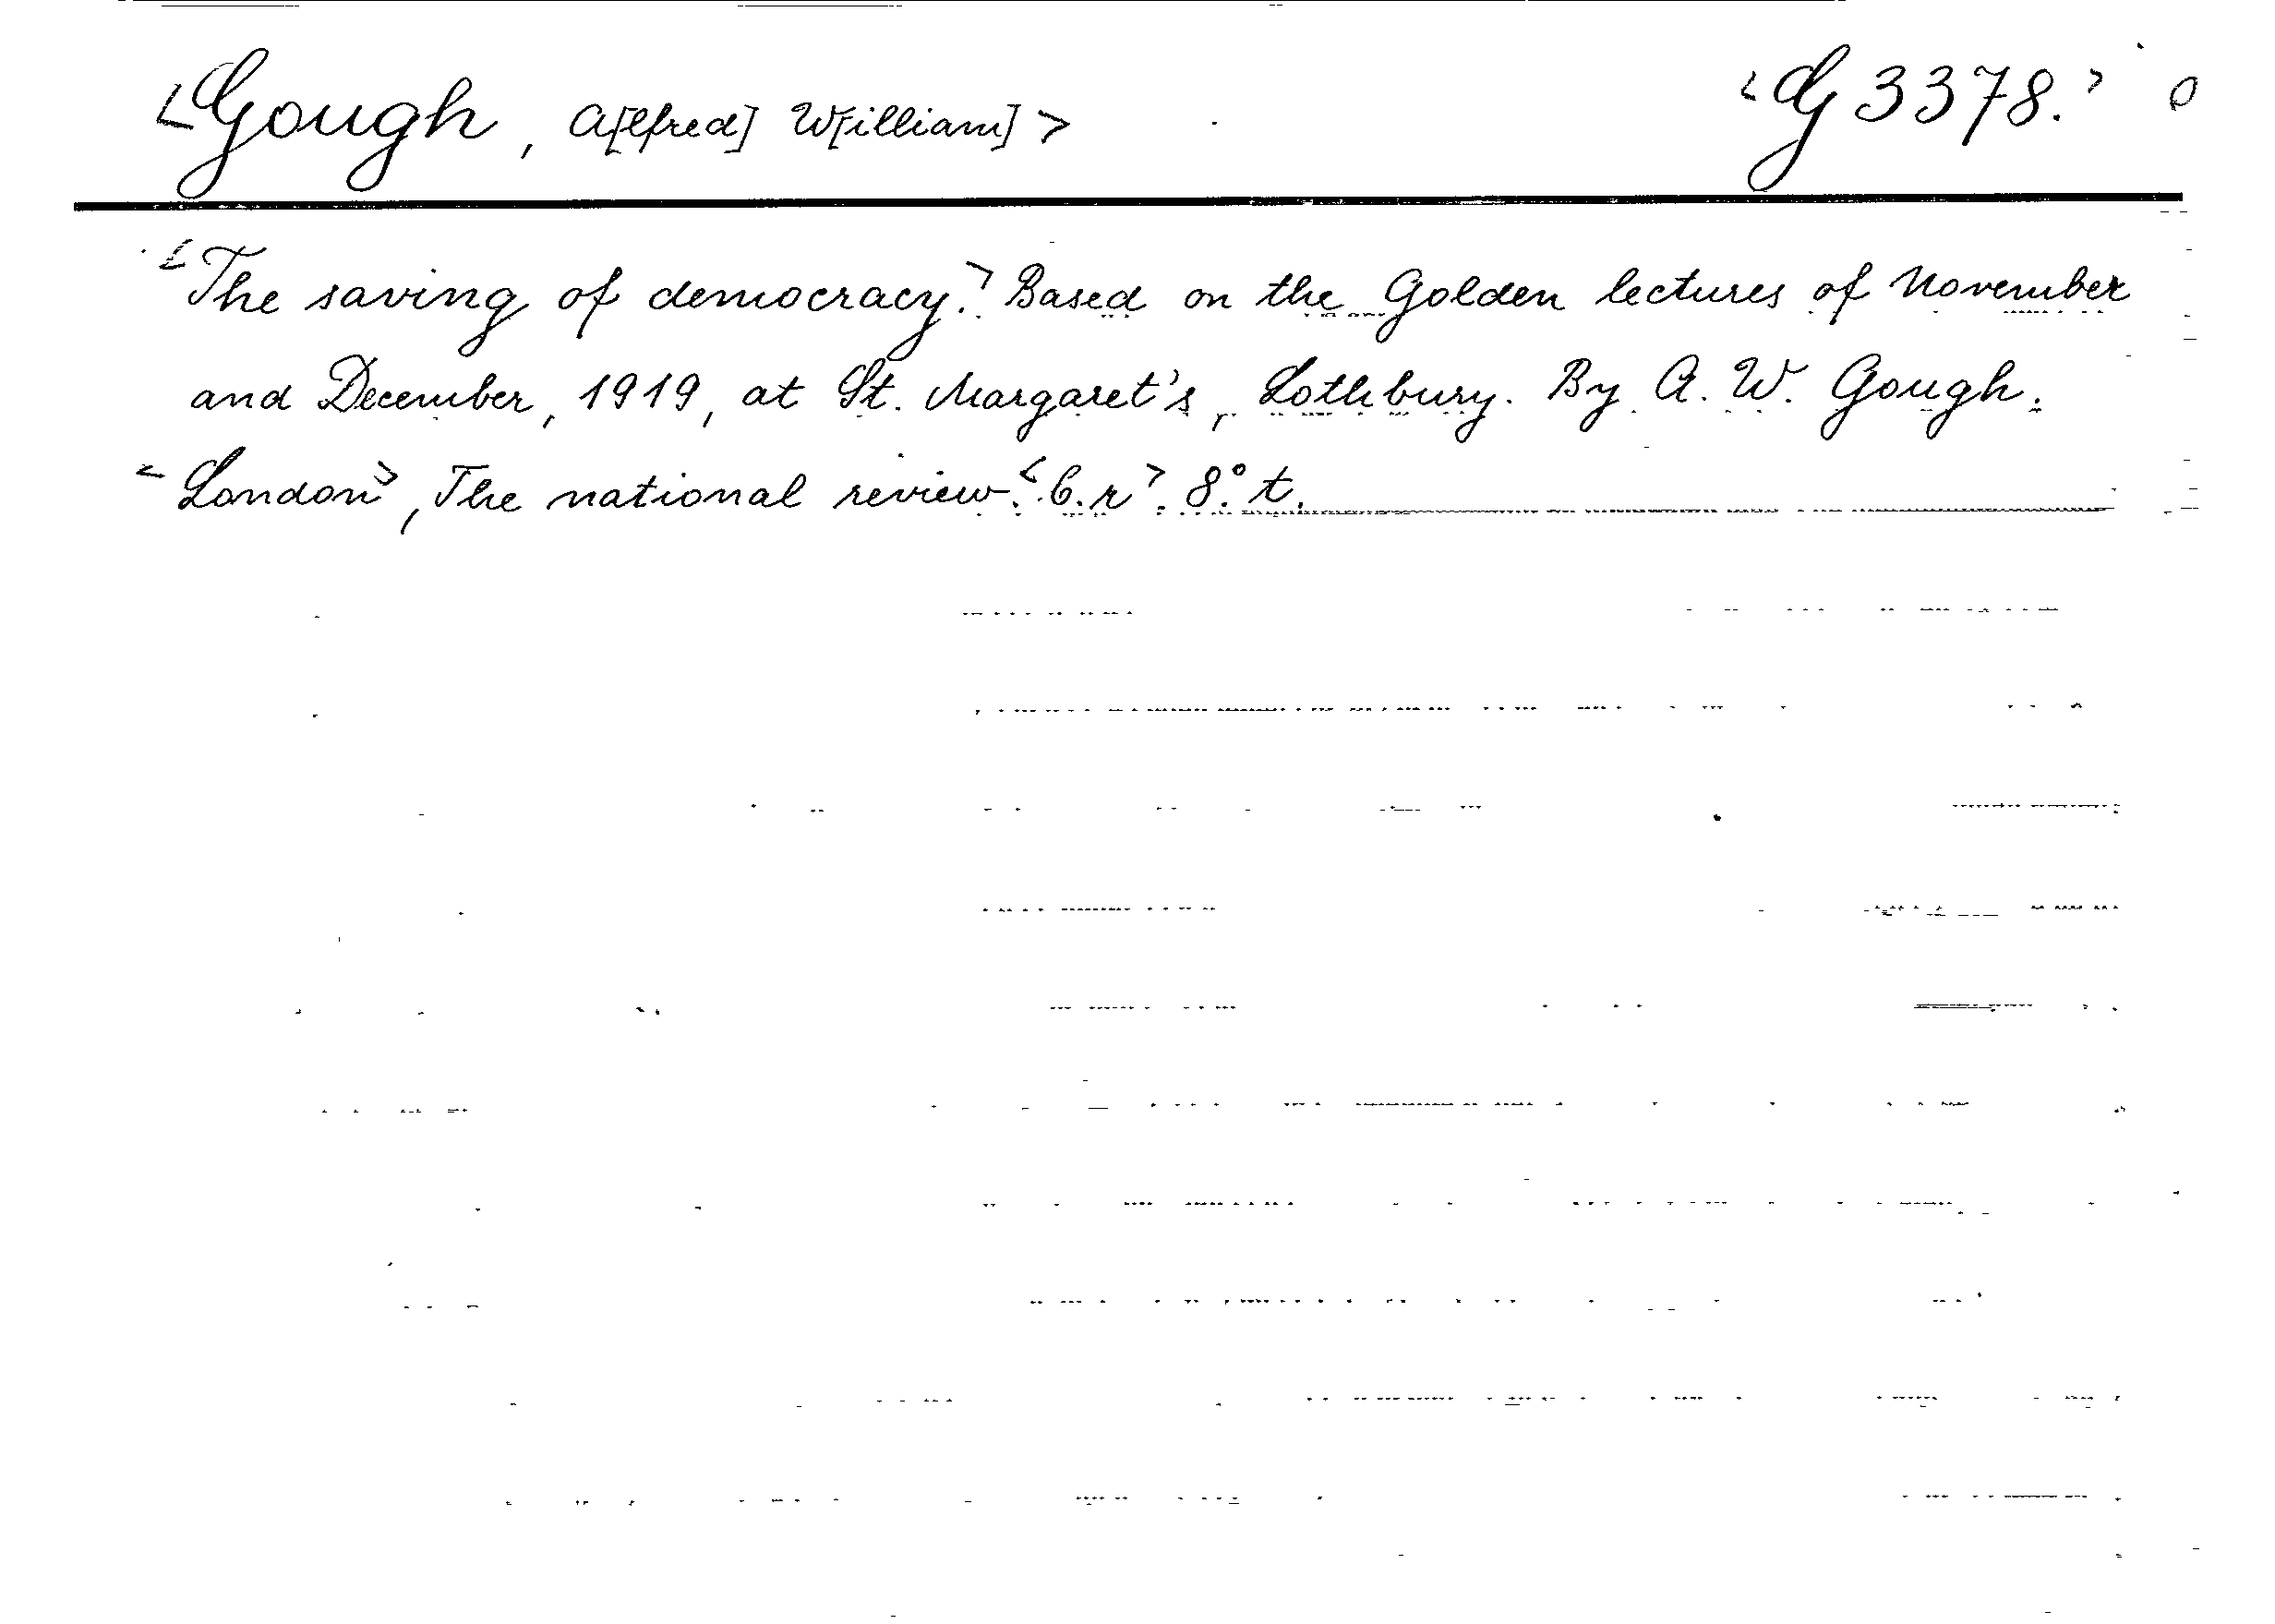 <Gough, A[lfred] W[illiam]> <G 3378.> 0
<The saving of democracy.> Based on the Golden lectures of November
and December, 1919, at St. Margaret's, Lothbury. By A. W. Gough.
<London>, The national review. <b.r>. 8° t.